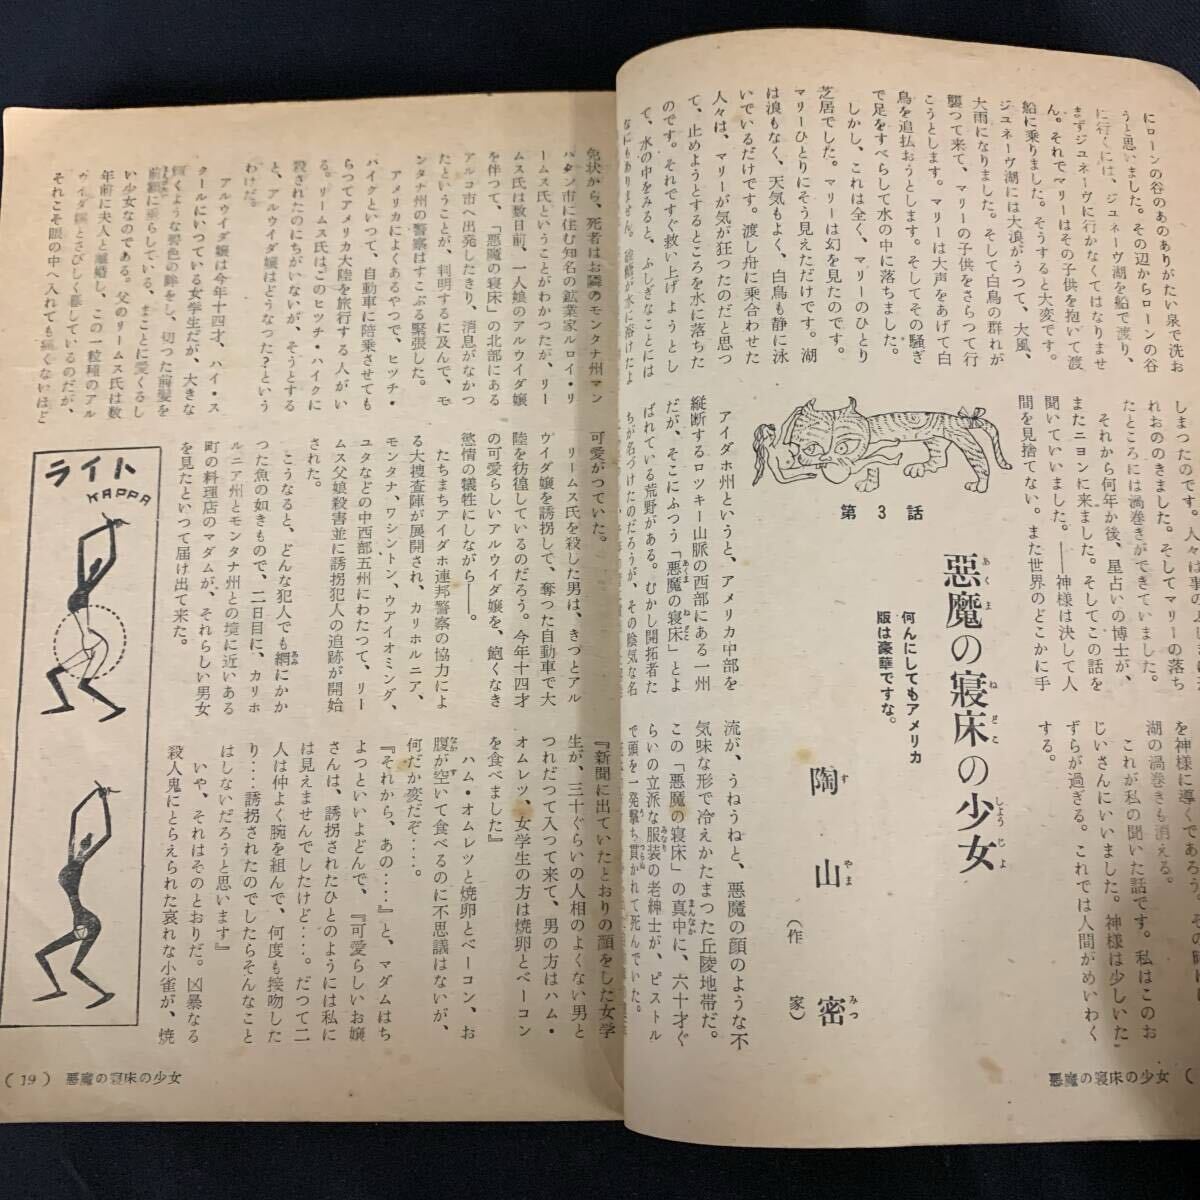 にローンの谷のあのありがたい泉で洗お
うと思いました。その辺からローンの谷
に行くには、ジュネーヴ湖を船で渡り、
まずジュネーヴに行かなくてはなりませ
ん。それでマリーはその子供を抱いて渡
船に乗りました。そうすると大変です。
ジュネーヴ湖には大浪がうつて、大風、
大雨になりました。そして白鳥の群れが
襲つて来て、マリーの子供をさらつて行
こうとします。マリーは大声をあげて白
鳥を追払おうとします。そしてその騒ぎ
で足をすべらして水の中に落ちました。
しかし、これは全く、マリーのひとり
芝居でした。マリーは幻を見たのです。
マリーひとりにそう見えただけです。湖
は浪もなく、天気もよく、白鳥も静に泳
いでいるだけです。渡し舟に乗合わせた
人々は、マリーが気が狂つたのだと思つ
て、止めようとするところを水に落ちた
のです。それですぐ救い上げようとし
て、水の中をみると、ふしぎなことには
なにもありません。砂糖が水に溶けたよ
しまつたのです。人々は
れおののきました。そしてマリーの落ち
たところには渦巻きができていました。
それから何年か後、星占いの博士が、
またニヨンに来ました。そしてこの話を
聞いていいました。――神様は決して人
間を見捨てない。また世界のどこかに手
を神様に導くであろう、その
湖の渦巻きも消える。
これが私の聞いた話です。私はこのお
じいさんにいいました。神様は少しいた
ずらが過ぎる。これでは人間がめいわく
する。
第3話
悪魔の寝床の少女
あくま
ねどこ
しようじよ
何んにしてもアメリカ
版は豪華ですな。
陶山密
すやまみつ
(作家)
アイダホ州というと、アメリカ中部を
縦断するロツキー山脈の西部にある一州
だが、そこにふつう「悪魔の寝床」とよ
ばれている荒野がある。むかし開拓者た
ちが名づけたのだろうが、その陰気な名
流が、うねうねと、悪魔の顔のような不
気味な形で冷えかたまつた丘陵地帯だ。
この「悪魔の寝床」の真中に、六十才ぐ
らいの立派な服装の老紳士が、ピストル
で頭を一発撃ち貫かれて死んでいた。
悪魔の寝床の少女 (
免状から、死者はお隣のモンタナ州マン
ハタン市に住む知名の鉱業家ルロイ・リ
ームス氏ということがわかつたが、リー
ムス氏は数日前、一人娘のアルウイダ嬢
を伴つて、「悪魔の寝床」の北部にある
アルコ市へ出発したきり、消息がなかつ
たということが、判明するに及んで、モ
ンタナ州の警察はすこぶる緊張した。
アメリカによくあるやつで、ヒツチ・
ハイクといつて、自動車に陪乗させても
らつてアメリカ大陸を旅行する人がい
る。リームス氏はこのヒツチ・ハイクに
殺されたのにちがいないが、そうとする
と、アルウイダ嬢はどうなつた?という
わけだ。
アルウイダ嬢は今年十四才、ハイ・ス
クールにいつている女学生だが、大きな
輝くような碧色の眸をし、切つた前髪を
前額に垂らしている、まことに愛くるし
い少女なのである。父のリームス氏は数
年前に夫人と離婚し、この一粒種のアル
ウイダ嬢とさびしく暮しているのだが、
それこそ眼の中へ入れても痛くないほど
可愛がつていた。
リームス氏を殺した男は、きつとアル
ウイダ嬢を誘拐して、奪つた自動車で大
陸を彷徨しているのだろう。今年十四才
の可愛らしいアルウイダ嬢を、飽くなき
慾情の犠牲にしながら――。
たちまちアイダホ連邦警察の協力によ
る大捜査陣が展開され、カリホルニア、
モンタナ、ワシントン、ウアイオミング、
ユタなどの中西部五州にわたつて、リー
ムス父娘殺害並に誘拐犯人の追跡が開始
された。
こうなると、どんな犯人でも網にかか
つた魚の如きもので、二日目に、カリホ
ルニア州とモンタナ州との境に近いある
町の料理店のマダムが、それらしい男女
を見たといつて届け出て来た。
『新聞に出ていたとおりの顔をした女学
生が、三十ぐらいの人相のよくない男と
つれだつて入つて来て、男の方はハム・
オムレツ、女学生の方は焼卵とベーコン
を食べました』
ハム・オムレツと焼卵とベーコン、お
腹が空いて食べるのに不思議はないが、
何だか変だぞ‥‥。
『それから、あの‥‥』と、マダムはち
よつといいよどんで、『可愛らしいお嬢
さんは、誘拐されたひとのようには私に
は見えませんでしたけど‥‥。だつて二
人は仲よく腕を組んで、何度も接吻した
り‥‥誘拐されたのでしたらそんなこと
はしないだろうと思います』
いや、それはそのとおりだ。凶暴なる
殺人鬼にとらえられた哀れな小雀が、焼
ライト
KAPPA
(19) 悪魔の寝床の少女